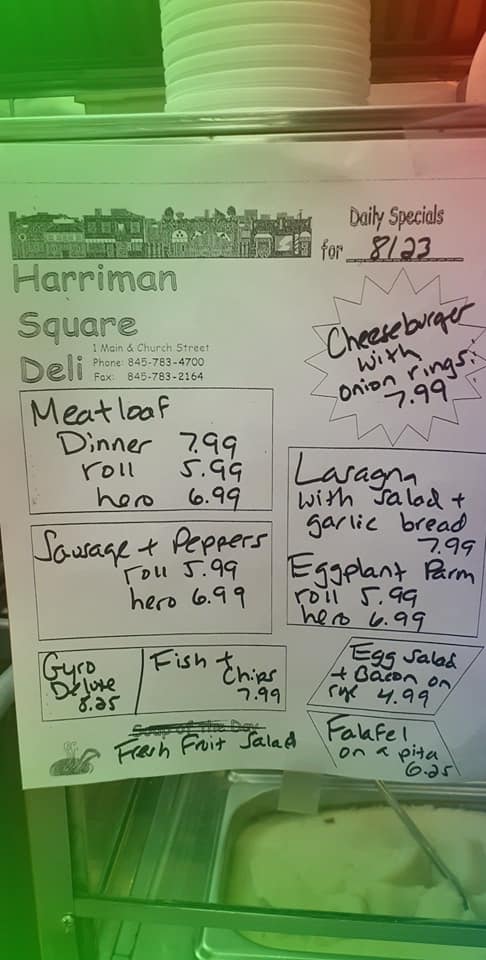 Daily Specials
for 8/23
Harriman
Square
Deli
1 Main & Church Street
Phone: 845-783-4700
Fax: 845-783-2164
Cheeseburger
with
onion rings.
7.99
Meatloaf
Dinner 7.99
roll 5.99
hero 6.99
Lasagna
with salad +
garlic bread
7.99
Eggplant Parm
roll 5.99
hero 6.99
Sausage + Peppers
roll 5.99
hero 6.99
Gyro
Deluxe
8.25
Fish +
Chips
7.99
Egg Salad
+ Bacon on
rye 4.99
Soup of the Day
Fresh Fruit Salad
Falafel
on a pita
6.25